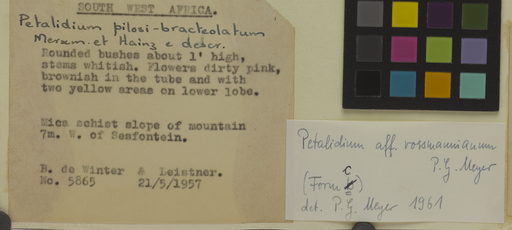 SOUTH WEST AFRICA.
Petalidium pilosi-bracteolatum
Merxm. et Hainz e descr.
Rounded bushes about 1' high,
stems whitish. Flowers dirty pink,
brownish in the tube and with
two yellow areas on lower lobe.
Mica schist slope of mountain
7m. W. of Sesfontein.
B. de Winter & Leistner.
No. 5865 21/5/1957
Petalidium aff. rossmannianum
P. G. Meyer
(Form c)
det. P. G. Meyer 1961